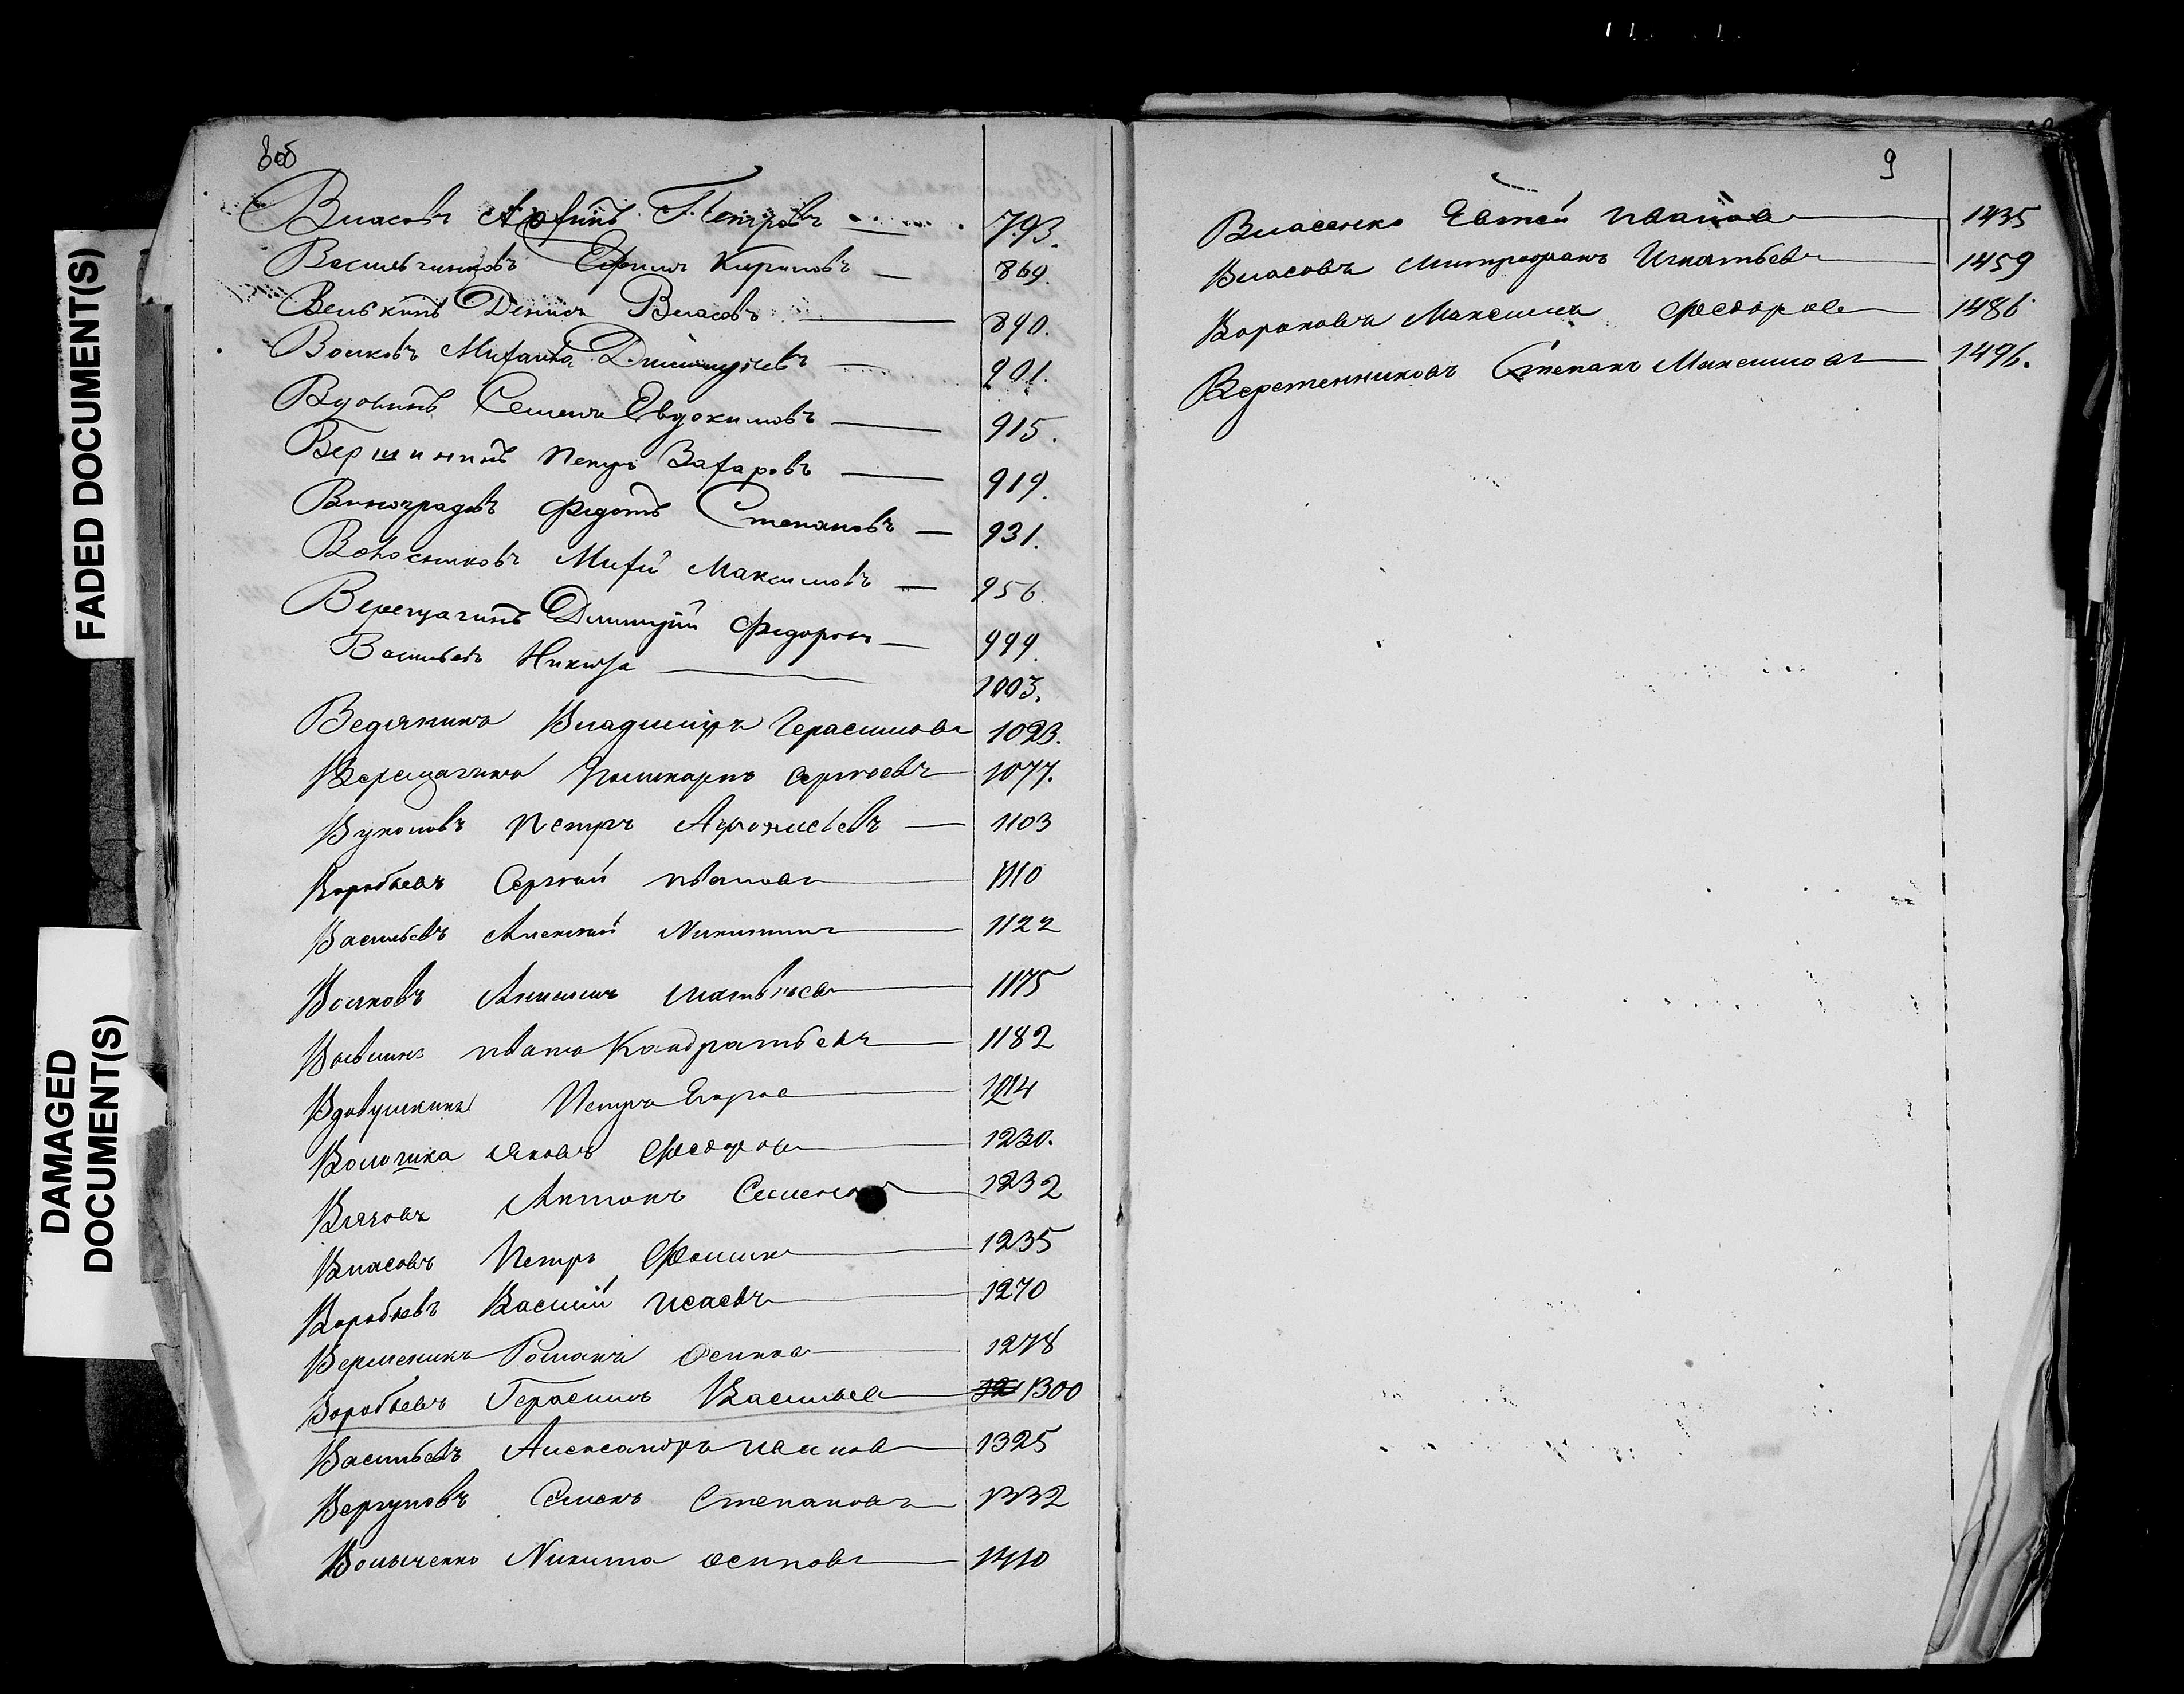 FADED DOCUMENT(S)
DAMAGED
DOCUMENT(S)
8об
Власовъ Петровъ 793.
Васильчиковъ Ефимъ Кириловъ 869.
Велькинъ Денисъ Власовъ 890.
Волковъ Михаилъ Дмитріевъ 901.
Вдовинъ Семенъ Евдокимовъ 915.
Вершининъ Петръ Захаровъ 919.
Виноградовъ Федотъ Степановъ 931.
Волосниковъ Михей Максимовъ 956.
Верещагинъ Дмитрій Федоровъ 999.
Васильевъ Никита 1003.
Ведяникъ Владиміръ Герасимовъ 1023.
Верещагинъ Поликарпъ Сергѣевъ 1077.
Вуколовъ Петръ 1103
Воробьевъ Сергѣй Ивановъ 1110
Васильевъ Алексѣй Никитинъ 1122
Волковъ Матвѣевъ 1175
Иванъ Кандратьевъ 1182
Вдовушкинъ Петръ Егоров 1214
Волошка Яковъ Федоровъ 1230.
Антонъ Семеновъ 1232
Власовъ Петръ Фоминъ 1235
Воробьевъ Василій Исаевъ 1270
Верменикъ Романъ Осиповъ 1278
Воробьевъ Герасимъ Васильев 1300
Васильевъ Александръ Иванов 1325
Вергуновъ Семенъ Степановъ 1332
Волыченко Никита Осиповъ 1410
9
Власенко Евтей Иванов 1435
Власовъ Митрофанъ Игнатьевъ 1459
Вороновъ Максимъ Федоров 1486
Веретенниковъ Степанъ Максимовъ 1496.